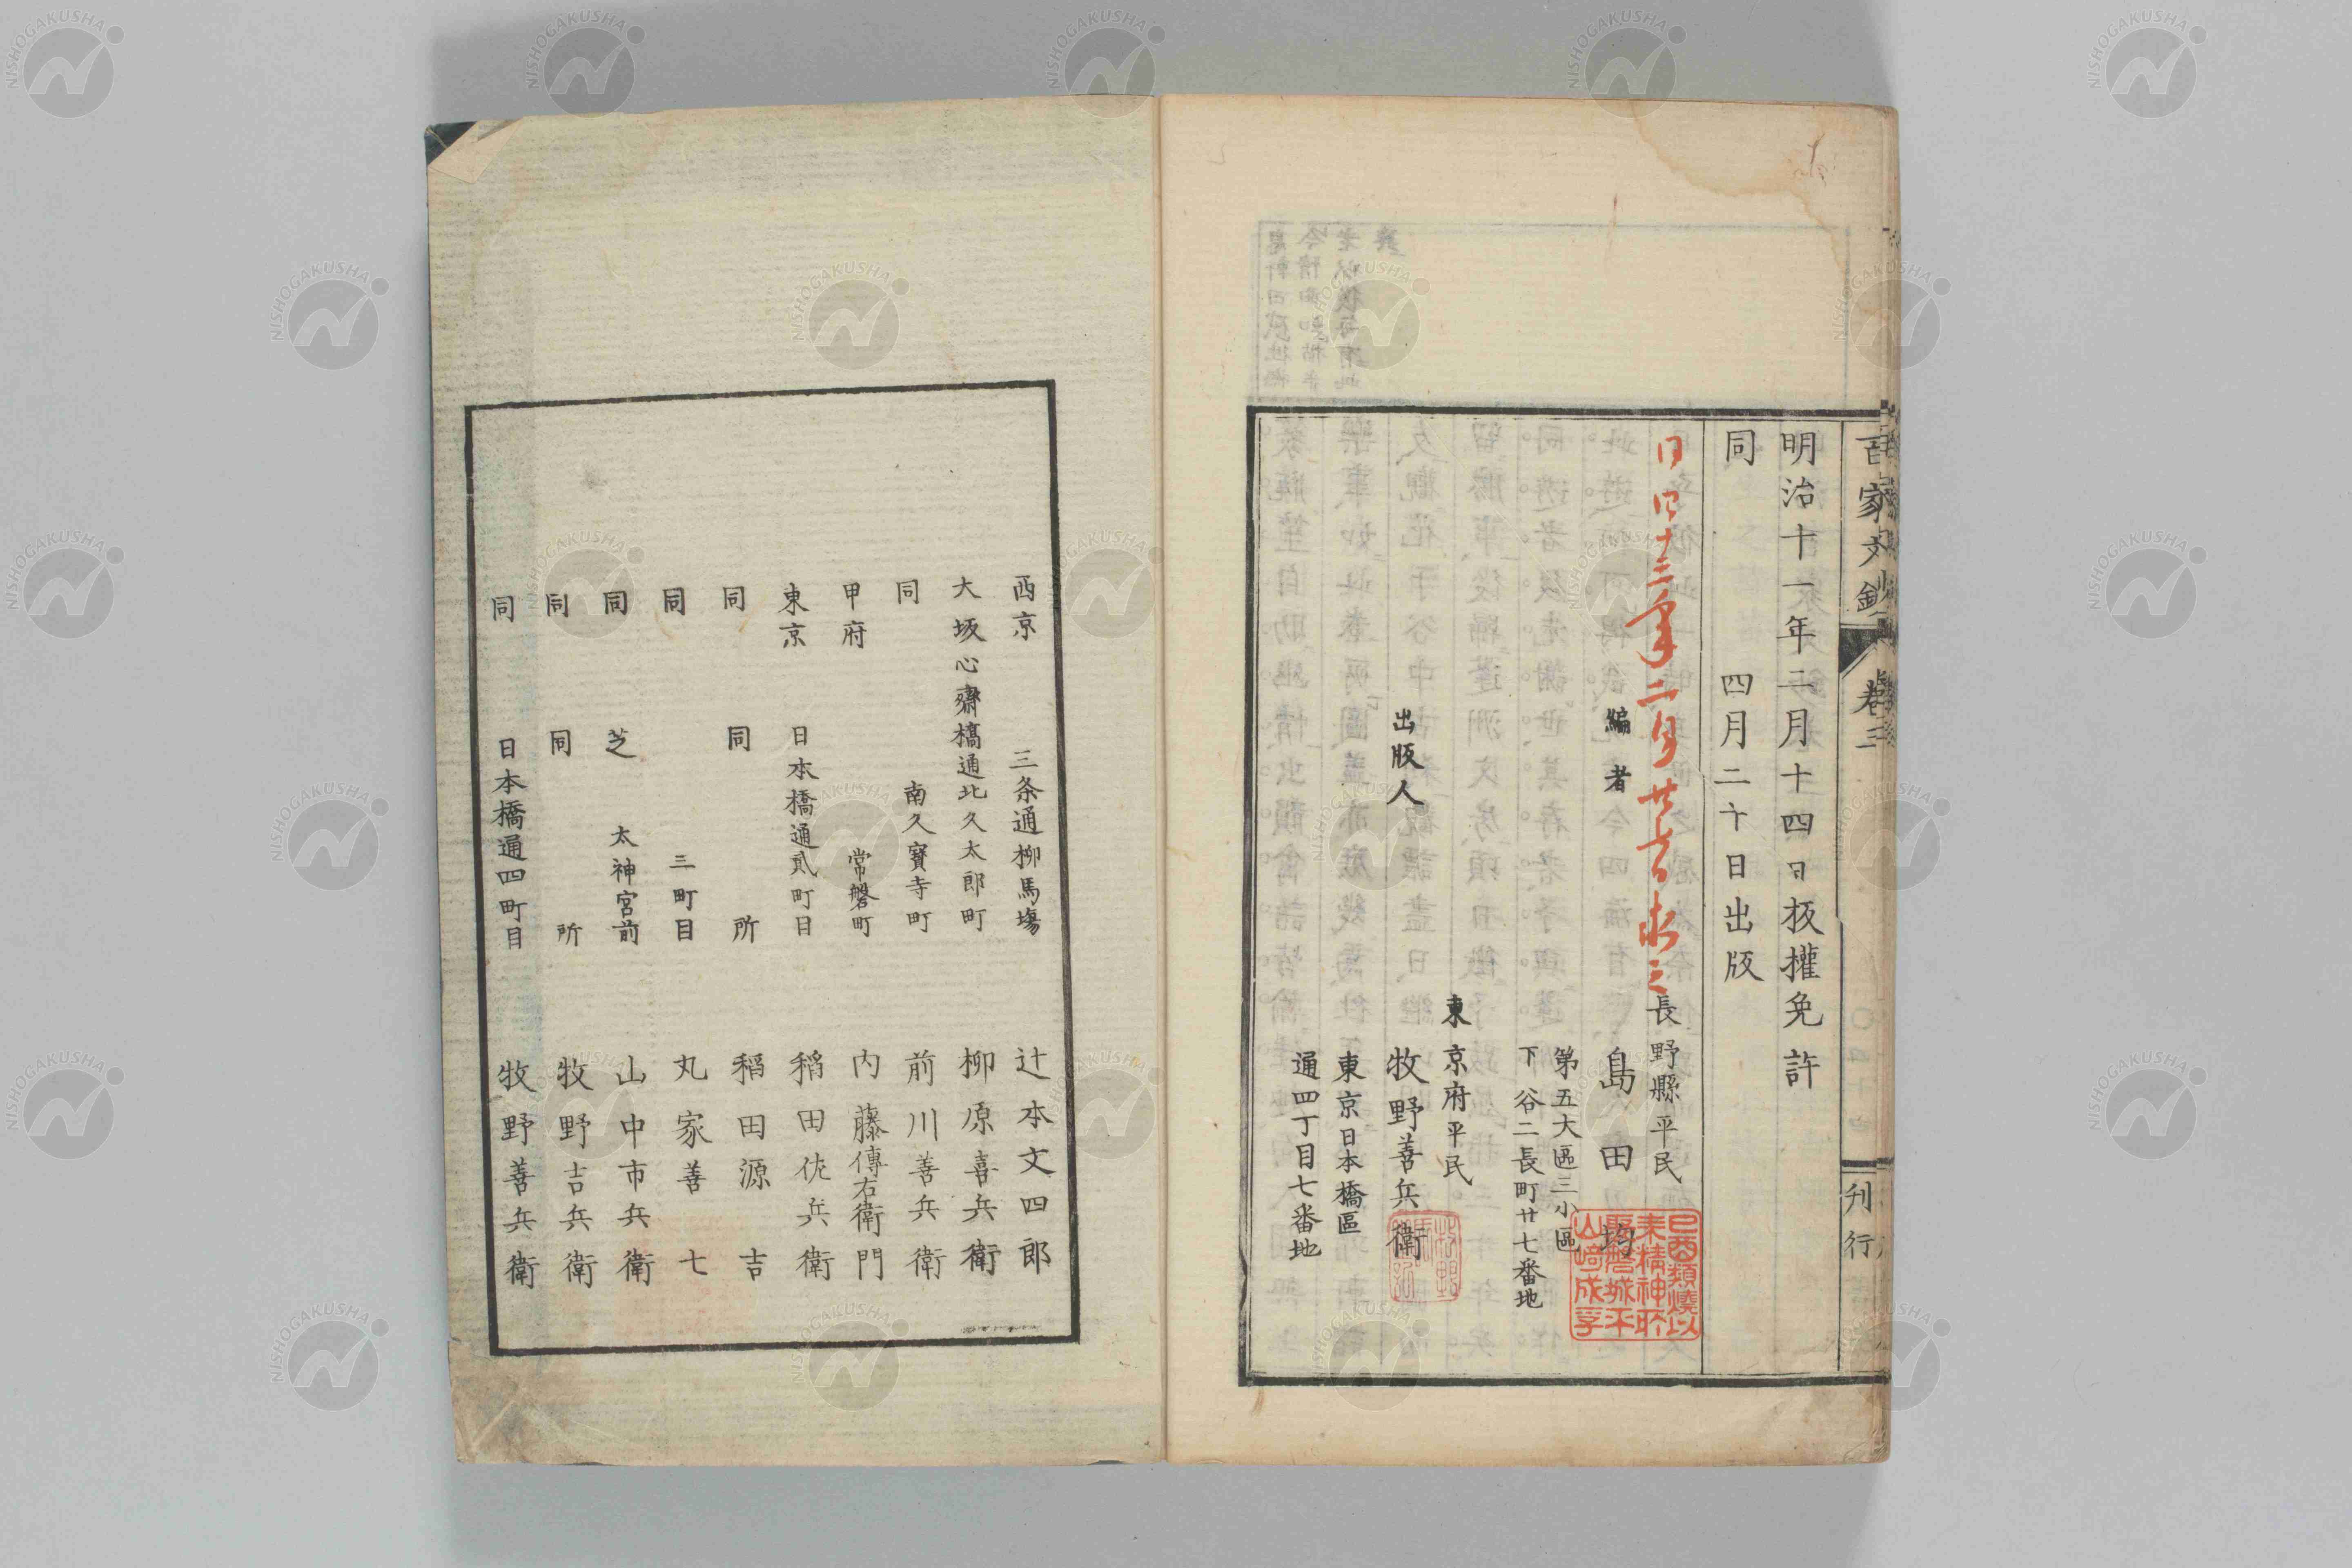 百家文鈔 卷三
刊行
明治十一年二月十四日板權免許
同 四月二十日出版
同 十三年二月廿 日求之
長野縣平民
編者 島田均
第五大區三小區
下谷二長町廿七番地
東京府平民
出版人 牧野善兵衛
東京日本橋區
通四丁目七番地
西京 三条通柳馬塲 辻本文四郎
大坂心齋橋通北久太郎町 柳原喜兵衛
同 南久寳寺町 前川善兵衛
甲府 常磐町 内藤傳右衛門
東京 日本橋通貳町目 稻田佐兵衛
同 同所 稻田源吉
同 三町目 丸家善七
同 芝太神宮前 山中市兵衛
同 同所 牧野吉兵衛
同 日本橋通四町目 牧野善兵衛
NISHOGAKUSHA